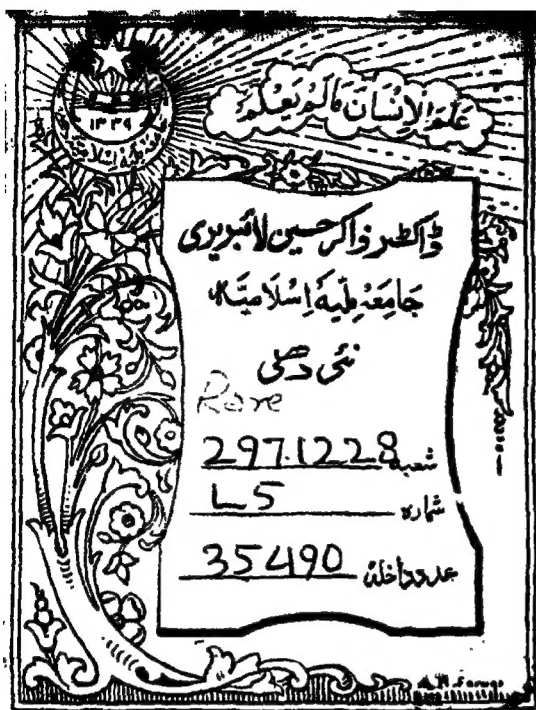 عَلَّمَ الْاِنْسَانَ مَا لَمْ يَعْلَمْ
۱۳۳۹
ڈاکٹر ذاکر حسین لائبریری
جَامِعَہ مِلّیہ اِسْلَامِیَّہ
نئی دہلی
Rare
شعبہ 297.1228
شمارہ L5
عدد داخلہ 35490